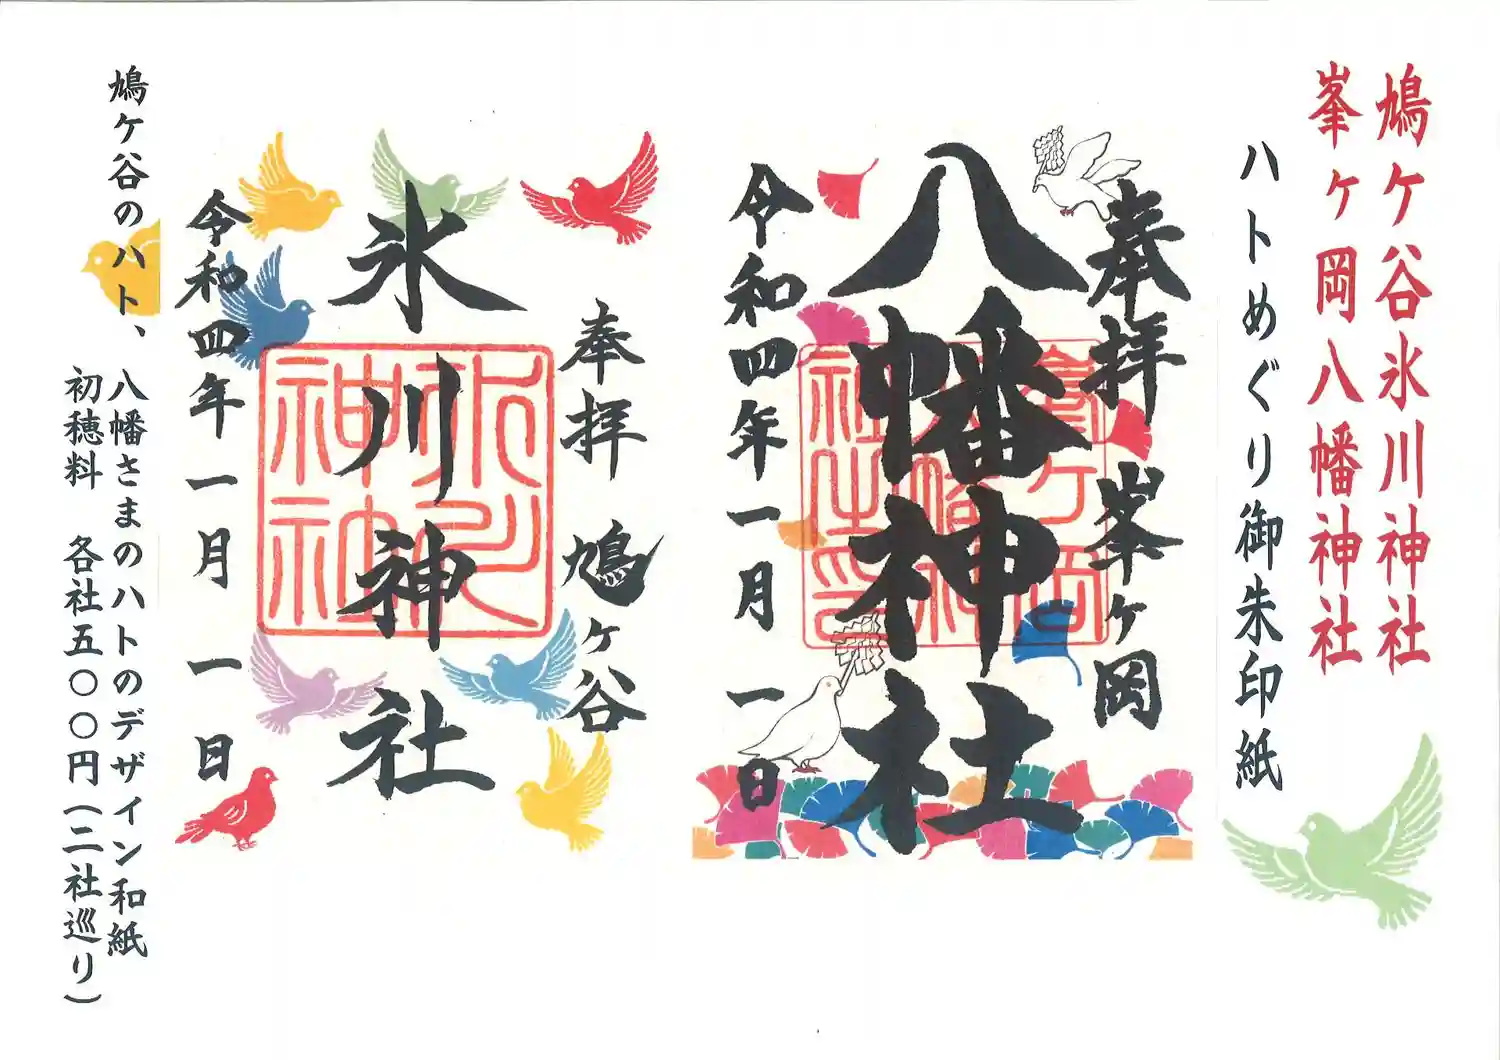 鳩ケ谷氷川神社
峯ヶ岡八幡神社
ハトめぐり御朱印紙
奉拝 峯ヶ岡
八幡神社
令和四年一月一日
奉拝 鳩ヶ谷
氷川神社
令和四年一月一日
氷川神社
鳩ケ谷のハト、八幡さまのハトのデザイン和紙
初穂料 各社五〇〇円(二社巡り)